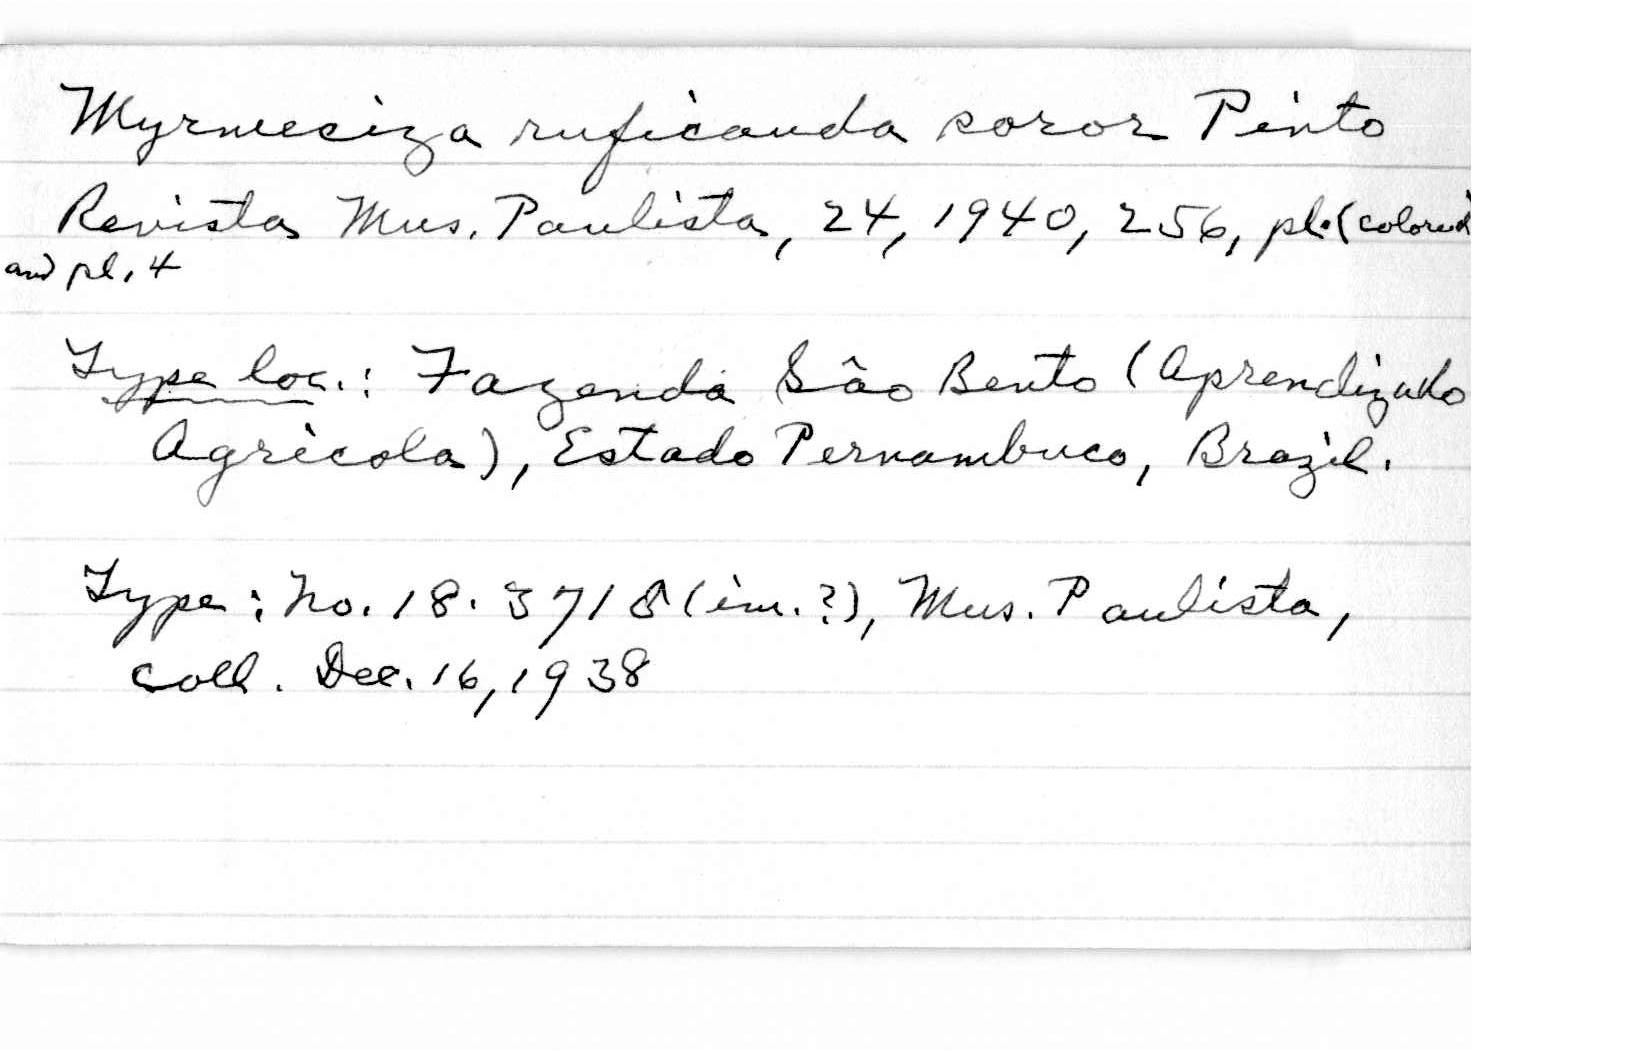 Myrmeciza ruficauda soror Pinto
Revista Mus. Paulista, 24, 1940, 256, pl. (colored)
and pl. 4
Type loc.: Fazenda São Bento (Aprendizado
Agricola), Estado Pernambuco, Brazil.
Type: No. 18.3718 (im.?), Mus. Paulista,
coll. Dec. 16, 1938